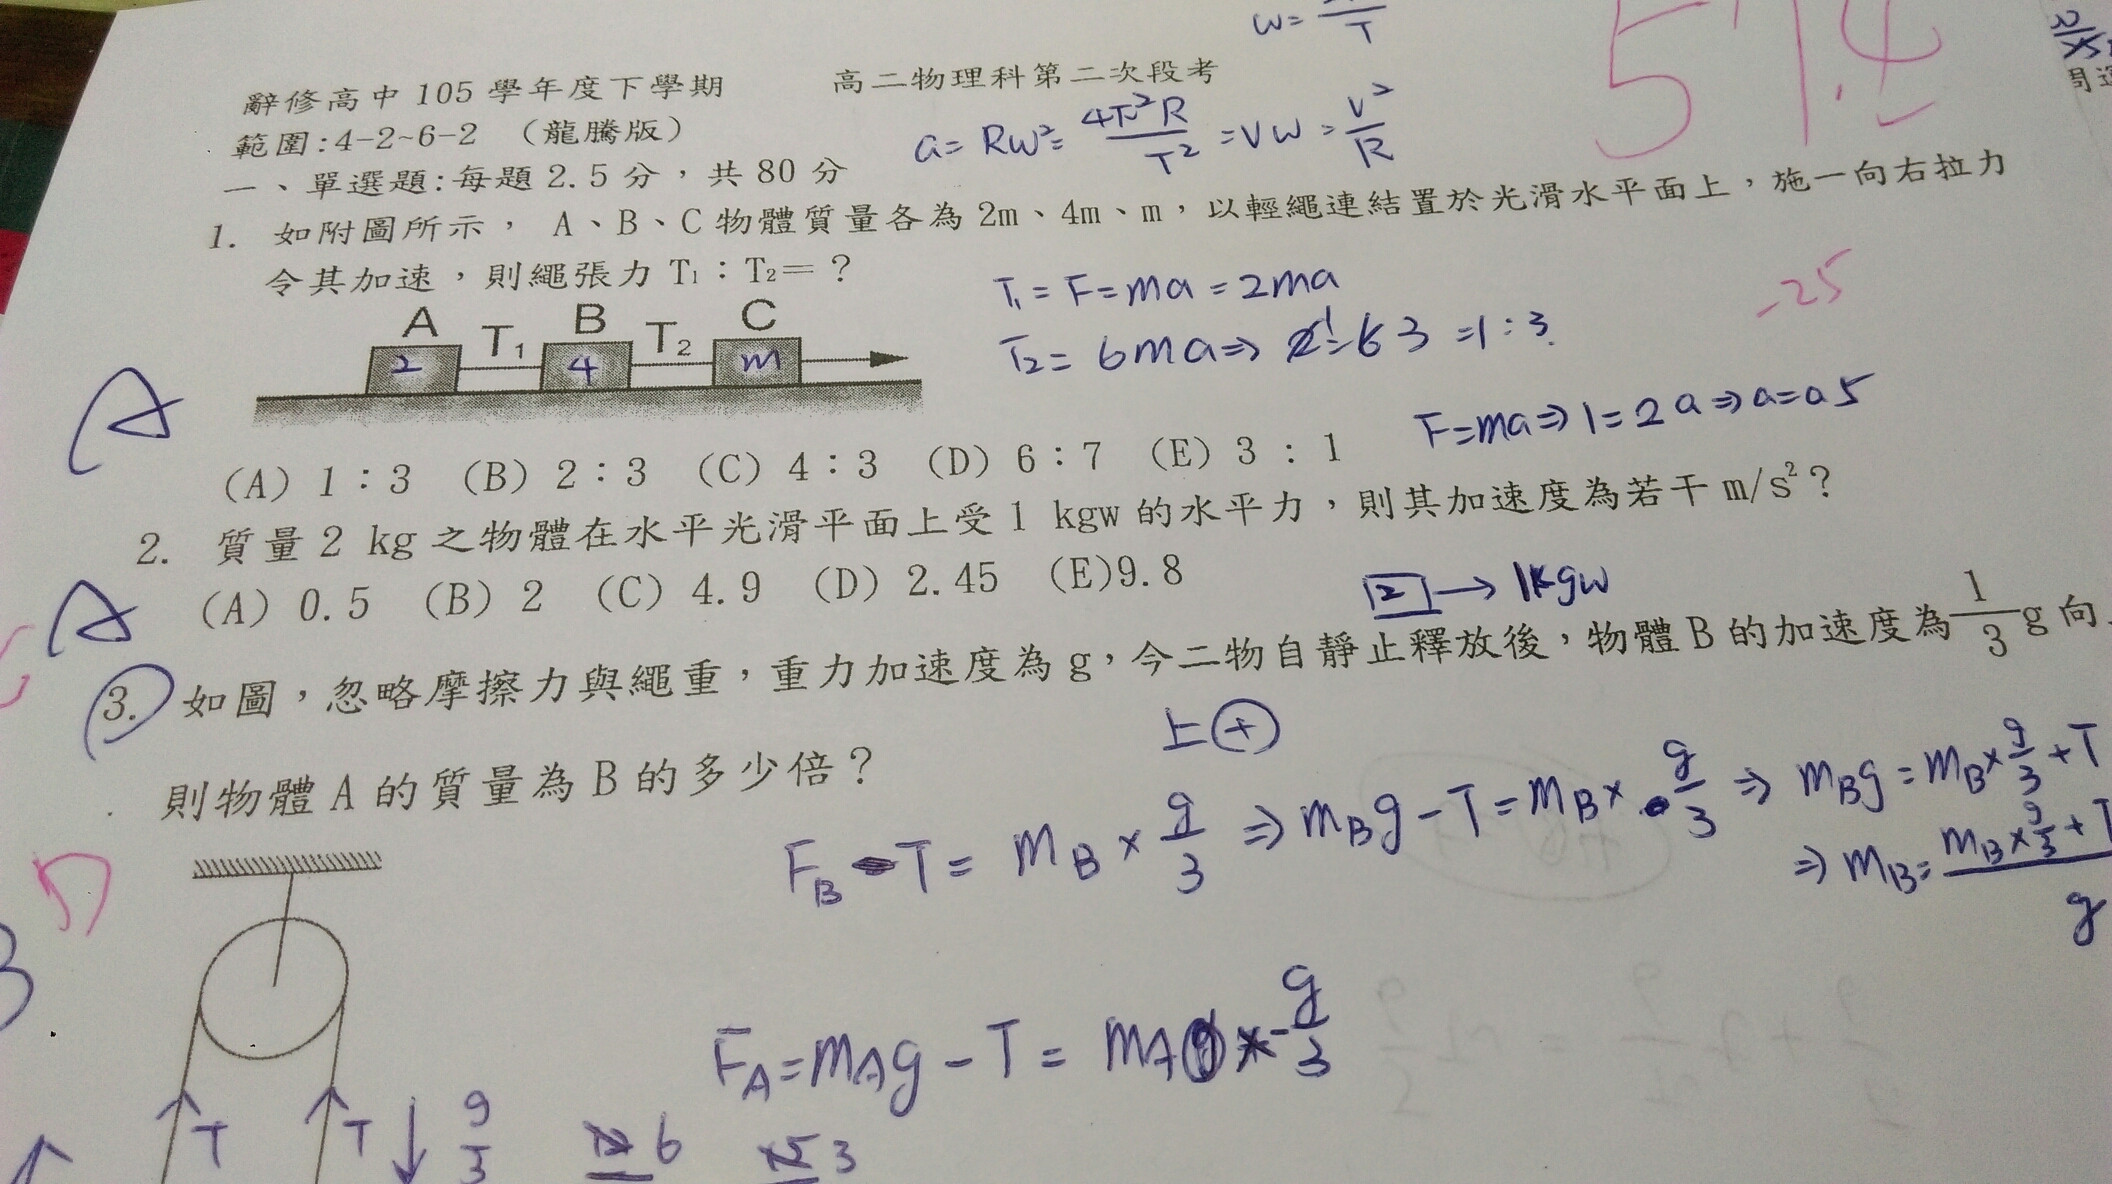 辭修高中 105 學年度下學期 高二物理科第二次段考
範圍:4-2~6-2 (龍騰版)
a= Rω²= 4π²R/T² =Vω = V²/R
57.4
一、單選題:每題 2.5 分,共 80 分
1. 如附圖所示, A、B、C 物體質量各為 2m、4m、m,以輕繩連結置於光滑水平面上,施一向右拉力
令其加速,則繩張力 T₁:T₂=?
T₁ = F=ma = 2ma
-25
T₂= 6ma⇒ 3 =1:3
A T₁ B T₂ C
2 4 m
A
(A) 1:3 (B) 2:3 (C) 4:3 (D) 6:7 (E) 3 : 1
F=ma⇒1=2a⇒a=0.5
2. 質量 2 kg 之物體在水平光滑平面上受 1 kgw 的水平力,則其加速度為若干 m/s²?
A
(A) 0.5 (B) 2 (C) 4.9 (D) 2.45 (E)9.8
2 → 1kgw
3. 如圖,忽略摩擦力與繩重,重力加速度為 g,今二物自靜止釋放後,物體 B 的加速度為 1/3 g 向
上 +
則物體 A 的質量為 B 的多少倍?
F_B - T = m_B × g/3 ⇒ m_B g - T = m_B × g/3 ⇒ m_B g = m_B × g/3 + T
⇒ m_B = (m_B × g/3 + T)/g
F_A = m_A g - T = m_A × -g/3
T T ↓ g/3 6 3